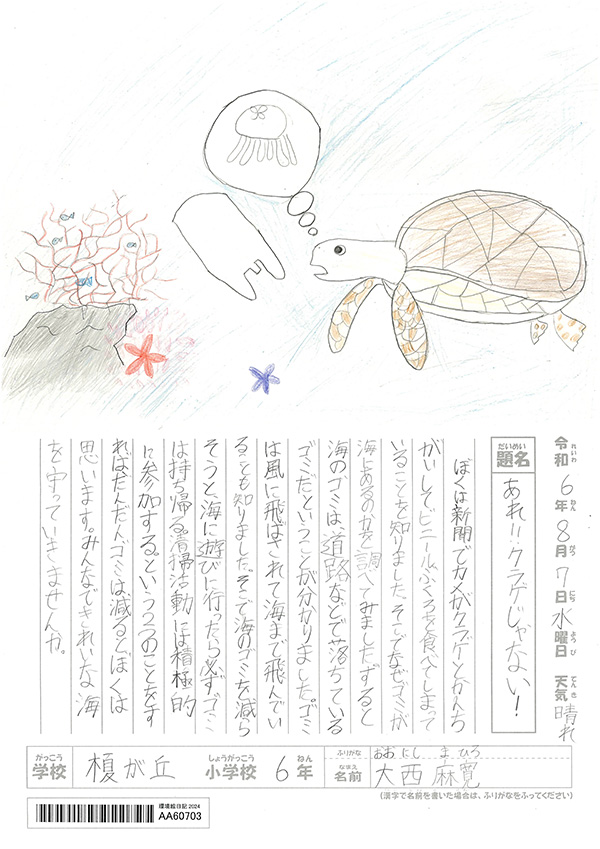 令和6年8月7日水曜日 天気晴れ
れいわ ねん がつ にち ようび てんき
だいめい
題名 あれ!!クラゲじゃない!
ぼくは新聞でカメがクラゲとかんち
がいしてビニールぶくろを食べてしまって
いることを知りました。そしてなぜゴミが
海にあるのかを調べてみました。すると
海のゴミは、道路などで落ちている
ゴミだということが分かりました。ゴミ
は風に飛ばされて海まで飛んでい
ることも知りました。そこで海のゴミを減ら
そうと、海に遊びに行ったら必ずゴミ
は持ち帰る。清掃活動には積極的
に参加する。という2つのことをす
ればだんだんゴミは、減るとぼくは
思います。みんなできれいな海
を守っていきませんか。
がっこう しょうがっこう ねん ふりがな おおにし まひろ
学校 榎が丘 小学校 6年 なまえ 名前 大西 麻寛
(漢字で名前を書いた場合は、ふりがなをふってください)
環境絵日記 2024
AA60703